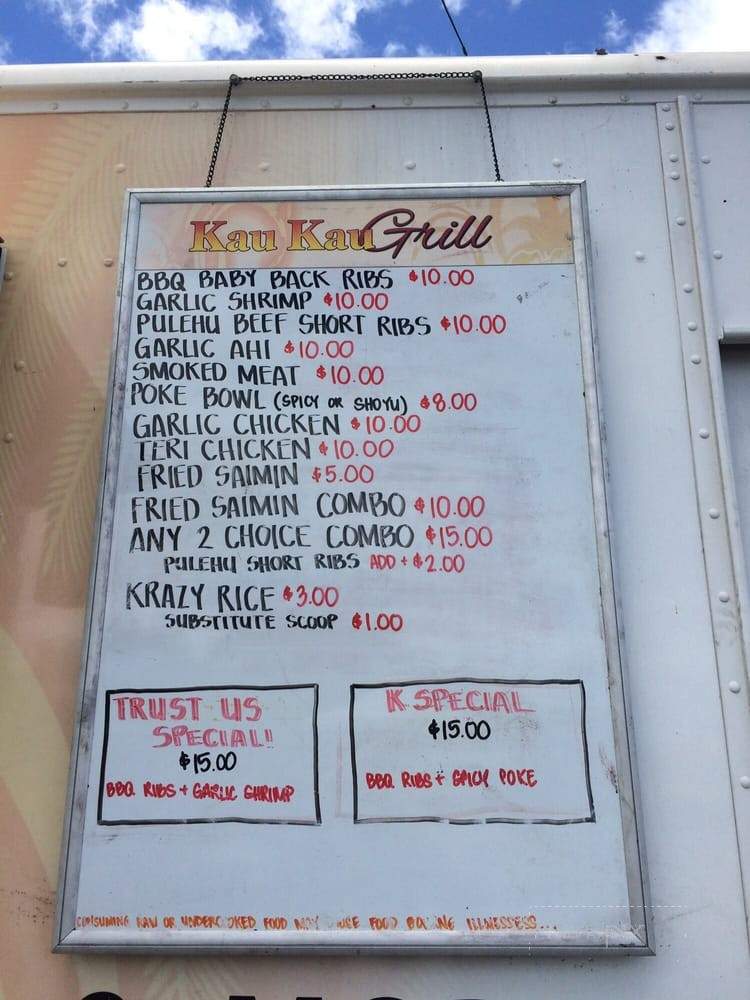 Kau Kau Grill
BBQ BABY BACK RIBS $10.00
GARLIC SHRIMP $10.00
PULEHU BEEF SHORT RIBS $10.00
GARLIC AHI $10.00
SMOKED MEAT $10.00
POKE BOWL (SPICY OR SHOYU) $8.00
GARLIC CHICKEN $10.00
TERI CHICKEN $10.00
FRIED SAIMIN $5.00
FRIED SAIMIN COMBO $10.00
ANY 2 CHOICE COMBO $15.00
PULEHU SHORT RIBS ADD + $2.00
KRAZY RICE $3.00
SUBSTITUTE SCOOP $1.00
TRUST US
SPECIAL!!
$15.00
BBQ RIBS + GARLIC SHRIMP
K SPECIAL
$15.00
BBQ RIBS + SPICY POKE
CONSUMING RAW OR UNDERCOOKED FOOD MAY FOOD ILLNESSESS...